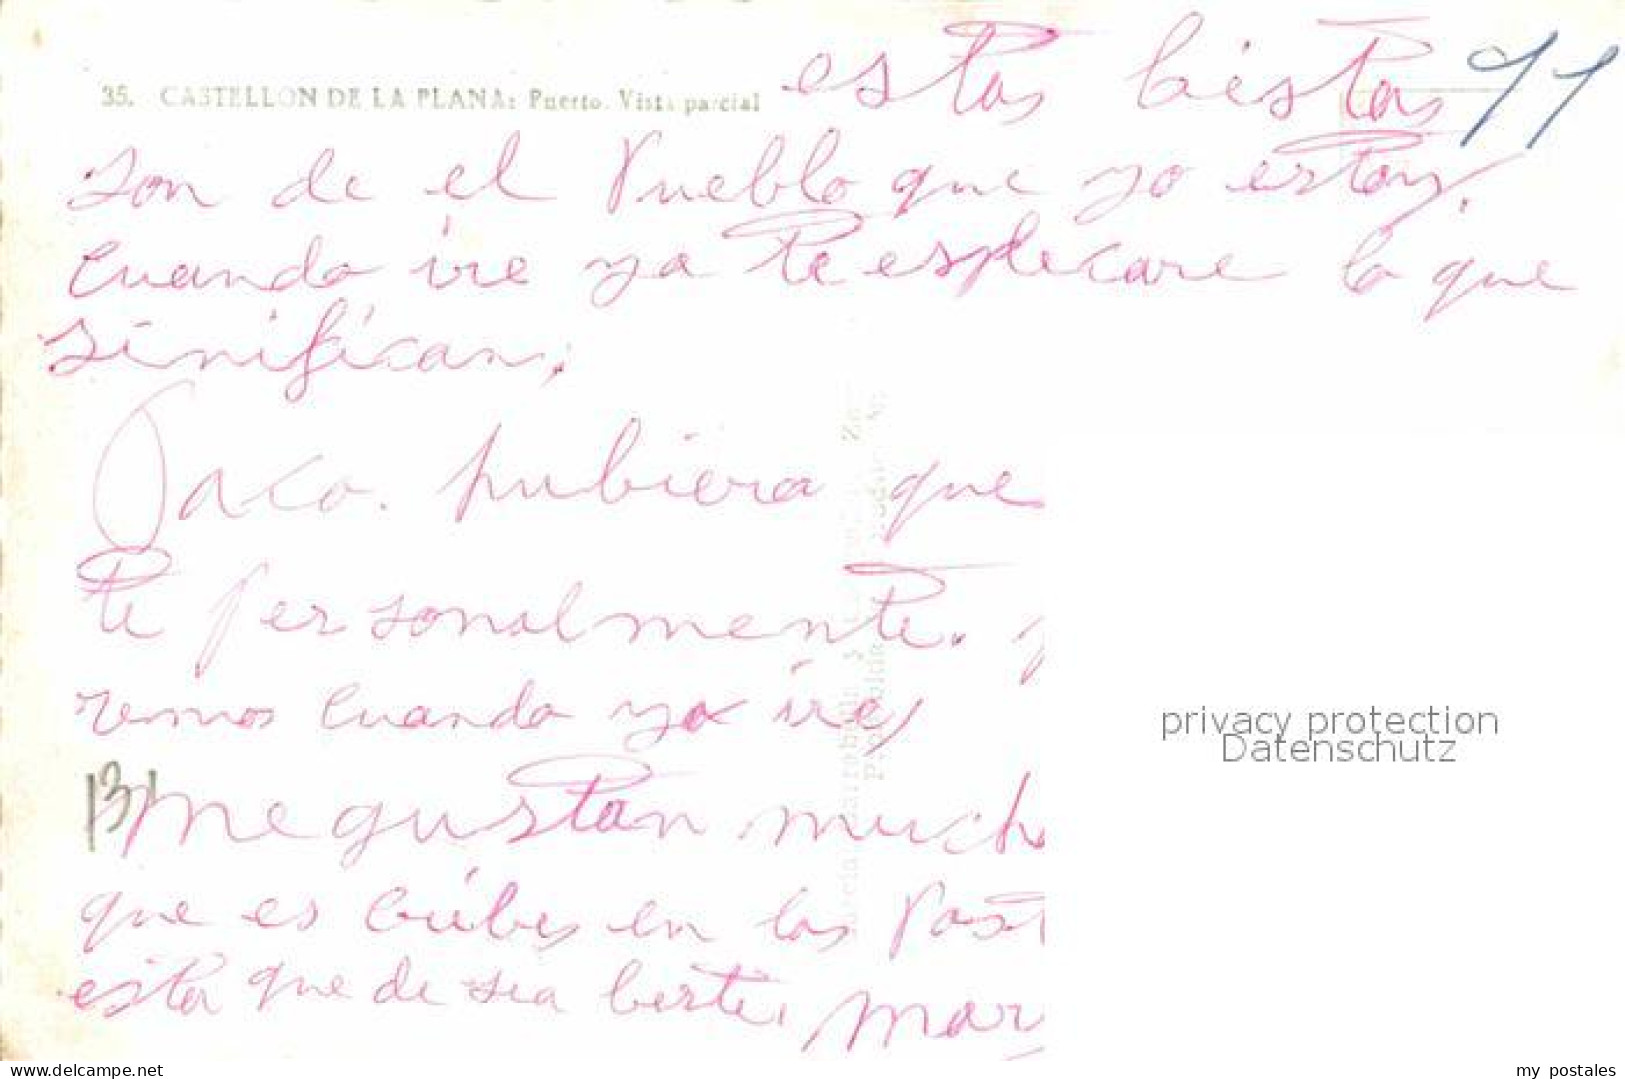 35. CASTELLON DE LA PLANA: Puerto. Vista parcial
estas bistas 11
son de el Pueblo que yo estoy.
cuando ire ya te esplecare lo que
sinifican,
Paco. hubiera que
te personalmente. y
remos cuando ya ire,
131 me gustan mucho
que es cribes en las Post
esta que de sea berte, mar
privacy protection
Datenschutz
www.delcampe.net
my_postales